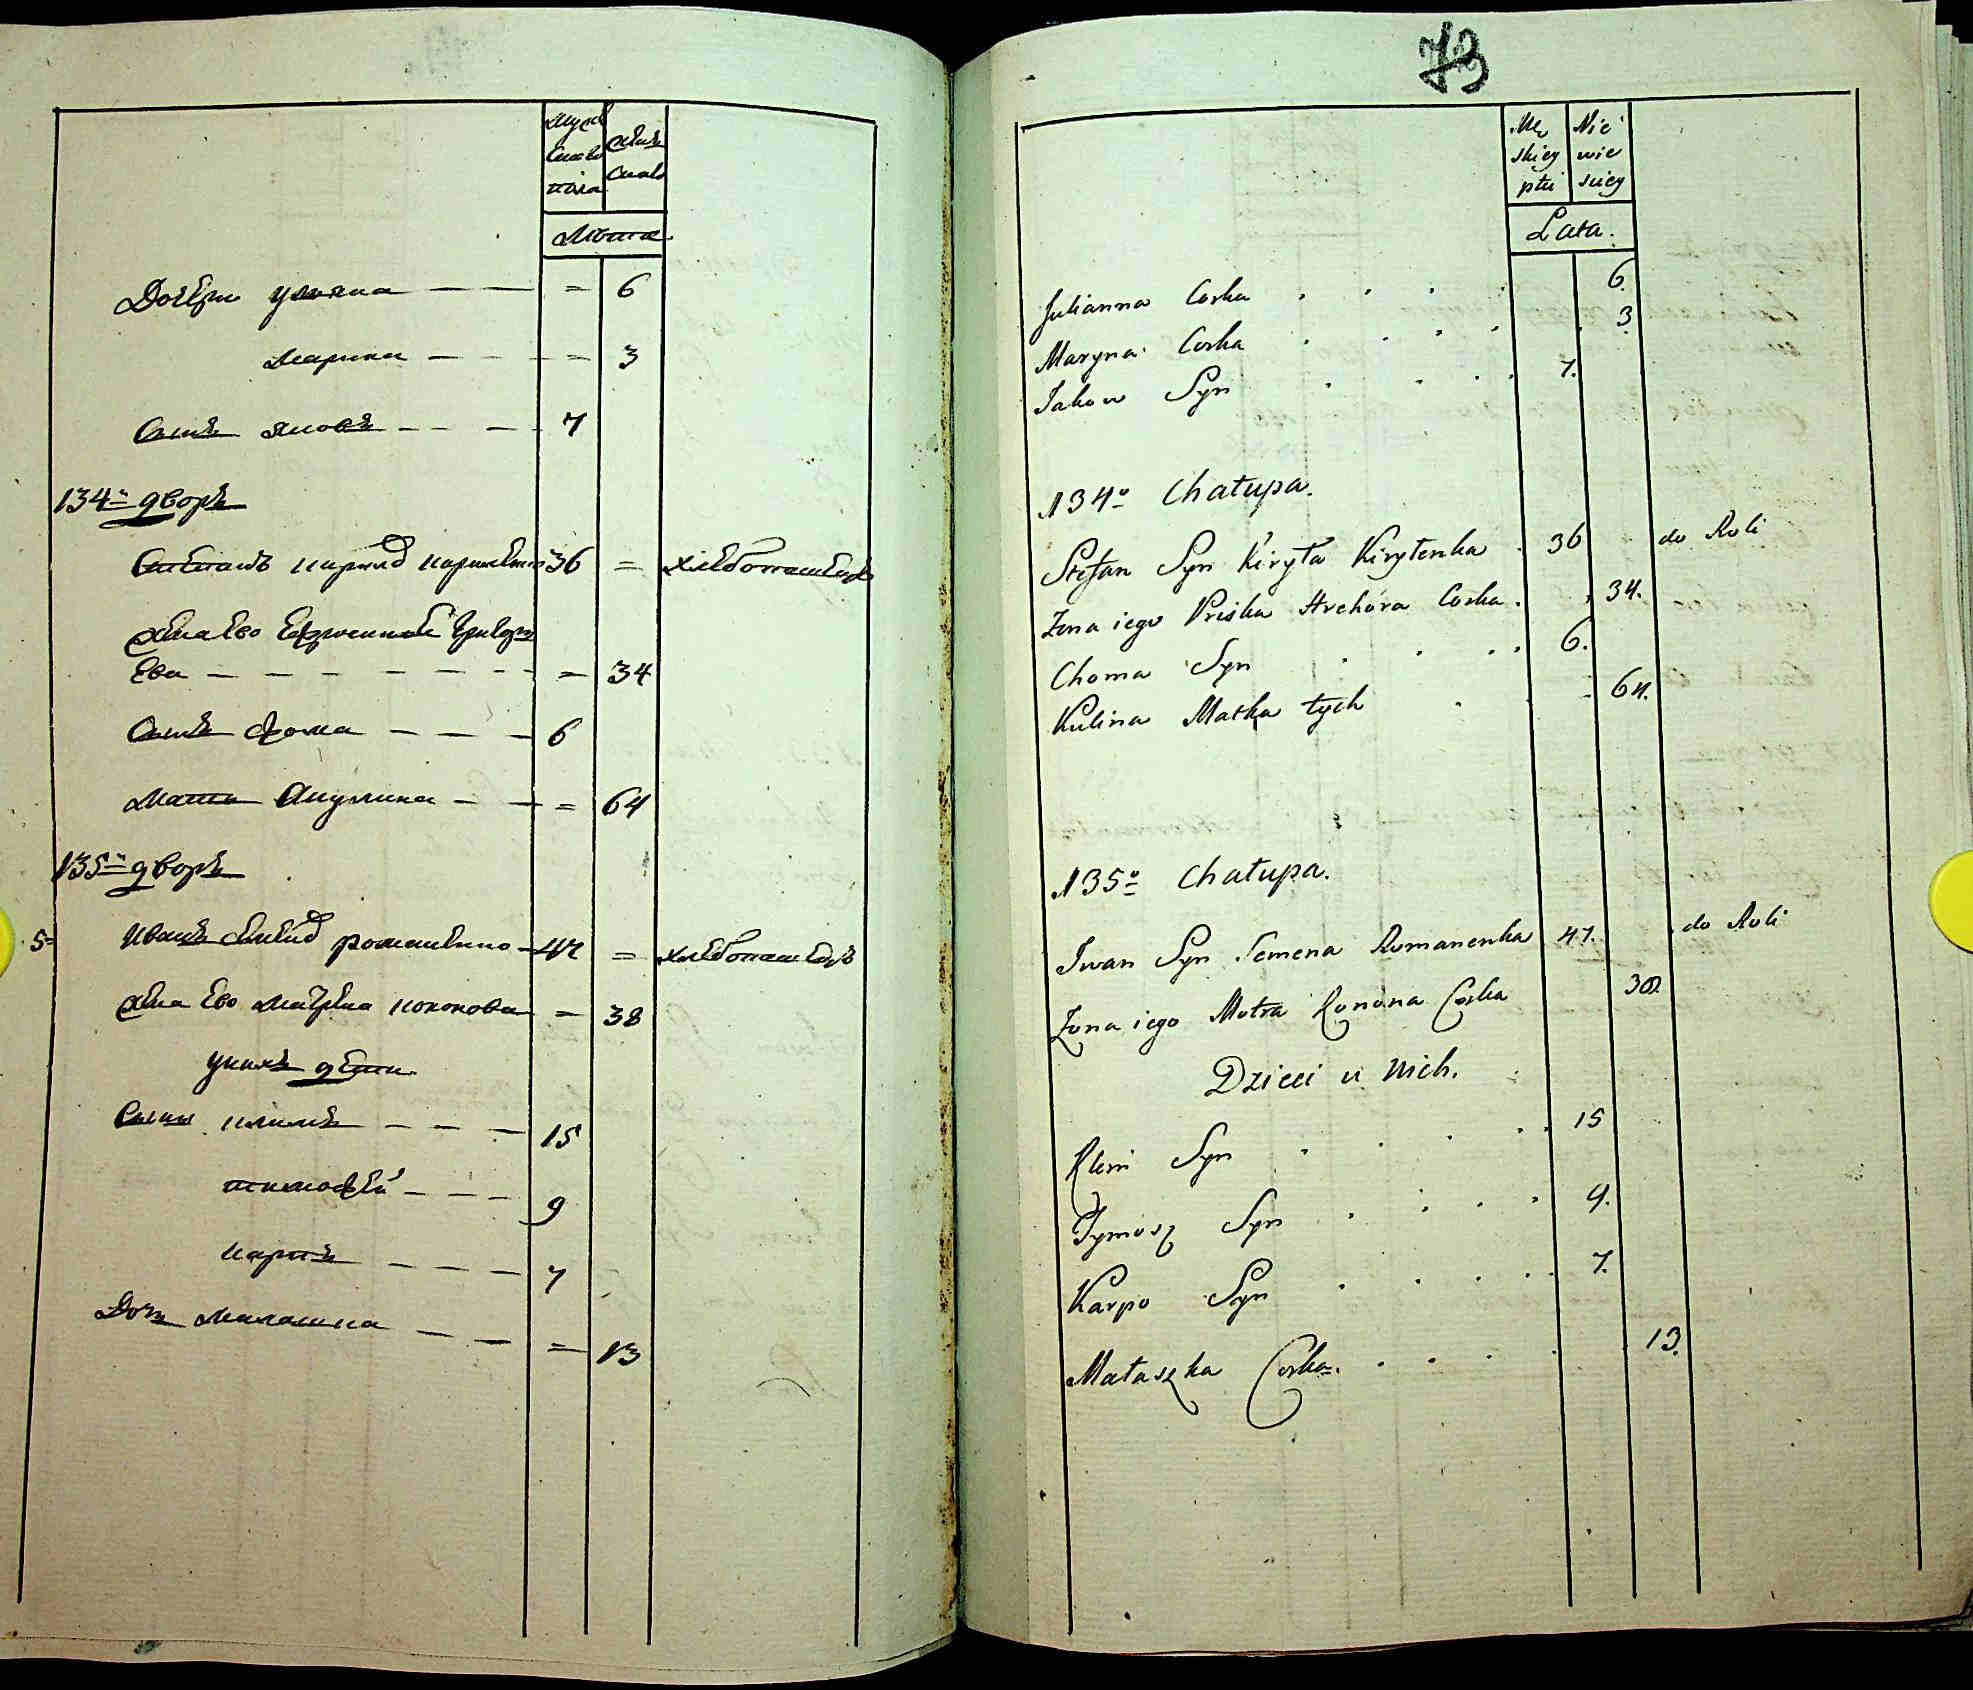 Муже
ска по
пола
Женс
ска
Лѣта
Дочери уляна — — = 6
Марина — — = 3
Сынъ яковъ — — 7
134й дворъ
Степанъ кирилов кириленко 36 = хлебопашецъ
жена Ево Ефросиния Григорь
Ева — — — — — = 34
Сынъ фома — — — 6
Мать Акулина — — = 64
135й дворъ
5 Иванъ семенов романенко — 47 = хлебопашецъ
жена Ево Матрена кононова = 38
унихъ дети
Сыны климъ — — — 15
тимофей — — — 9
карпъ — — — 7
Дочь Малашка — — = 13
73
Mę
skiey
płci
Nie
wie
sciey
Lata.
Julianna Corka . . . . 6.
Maryna Corka . . . . 3.
Jakow Syn . . . . 7.
134o Chałupa.
Stefan Syn Kiryła Kirylenka . 36 do Roli
Zona iego Priska Hrehora Corka . . 34.
Choma Syn . . . . 6.
Kulina Matka tych . . . 64.
135o Chałupa.
Iwan Syn Semena Romanenka 47. do Roli
Zona iego Motra Konona Corka 38.
Dzieci u nich.
Klim Syn . . . . 15
Tymosz Syn . . . . 9.
Karpo Syn . . . . 7.
Małaszka Corka. . . . . 13.